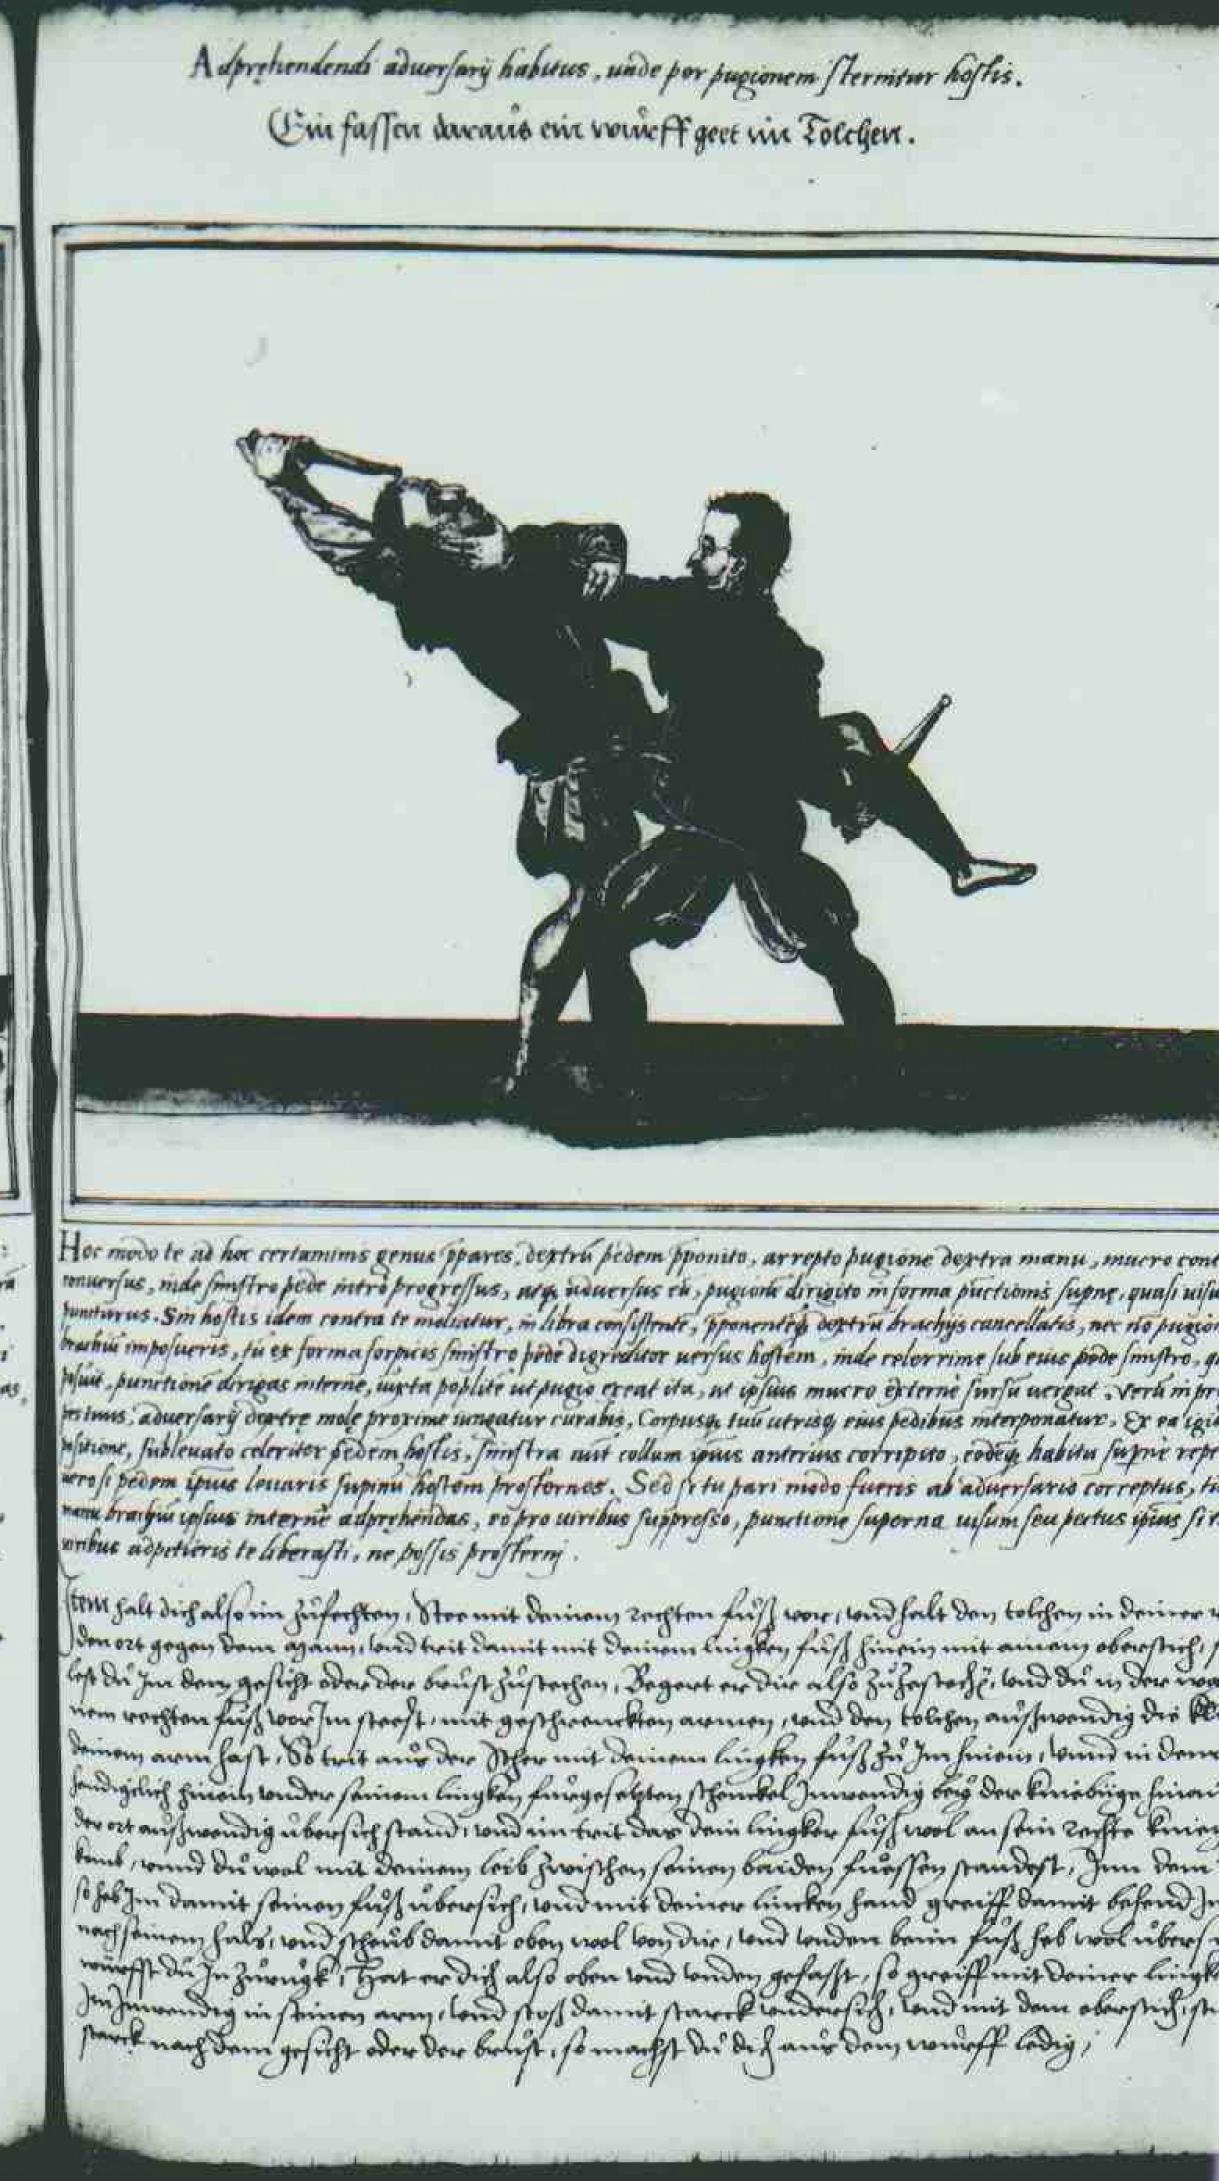 Adprehendendi aduersarij habitus, unde per pugionem sternitur hostis.
Ein fassen daraus ein wurff geet im Tolchen.
Hoc modo te ad hoc certaminis genus ppares, dextrũ pedem pponito, arrepto pugione dextra manu, mucro
conuersus, inde sinistro pede intro progressus, atq aduersus eũ, pugionẽ dirigito in forma pũctionis supnę, quasi
puncturus. Sin hostis idem contra te moliatur, in libra consistente, pponenteq dextrũ brachijs cancellatis, nec nõ
brachiũ imposueris, tũ ex forma forpicis sinistro pede digreditor uersus hostem, inde celerrime sub eius pede sinistro,
posuit, punctione dirigas interne, iuxta poplitẽ ut pugio exeat ita, ut ipsius mucro externe sursũ uergat. Verũ in
aduersarij dextrę proxime iungatur curabis, Corpusq tuũ utrisq eius pedibus interponatur, Ex ea
positione, subleuato celeriter pedem hostis, sinistra aũt collum ipsius anterius corripito, eodẽq habitu supnè
uero si pedem ipsius leuaris supinũ hostem prosternes. Sed si tu pari modo fueris ab aduersario correptus,
manu brachiũ ipsius internè adprehendas, eo pro uiribus suppresso, punctione superna uisum seu pectus ipsius
uiribus adpetieris te liberasti, ne possis prosterni.
Item halt dich also im zufechten, Stee mit deinem rechten fuß vor, vnd halt den tolchen in deiner
den ort gegen dem mann, vnd trit damit mit deinem lingken fuß hinein mit ainem oberstich,
lest du Im dem gesicht oder der brust zustechen, Begert er dir also zu, vnd du in der
nem rechten fuß vor Im steest, mit geschrenckten armen, vnd den tolchen außwendig die
deinem arm hast, So trit aus der Scher mit deinem lingken fuß zu Im hinein, vnnd in dem
hinein vnder seinem lingken furgesetzten schenckel Inwendig bey der kniebüge
der ort außwendig übersich stand, vnd im trit das dein lingker fuß wol an sein rechte
vnnd du wol mit deinem leib zwischen seinen baiden fuessen standest, Inn dem
so heb Im damit seinen fuß übersich, vnd mit deiner lincken hand greiff damit behend
nach seinem hals, vnd scheub damit oben wol von dir, vnd vnden beim fuß heb wol
würffst du In zurugk, Hat er dich also oben vnd vnden gefasst, so greiff mit deiner
Im Inwendig in seinen arm, vnd stoß damit starck vndersich, vnd mit dem oberstich,
starck nach dem gesicht oder der brust, so machst du dich aus dem wurff ledig,